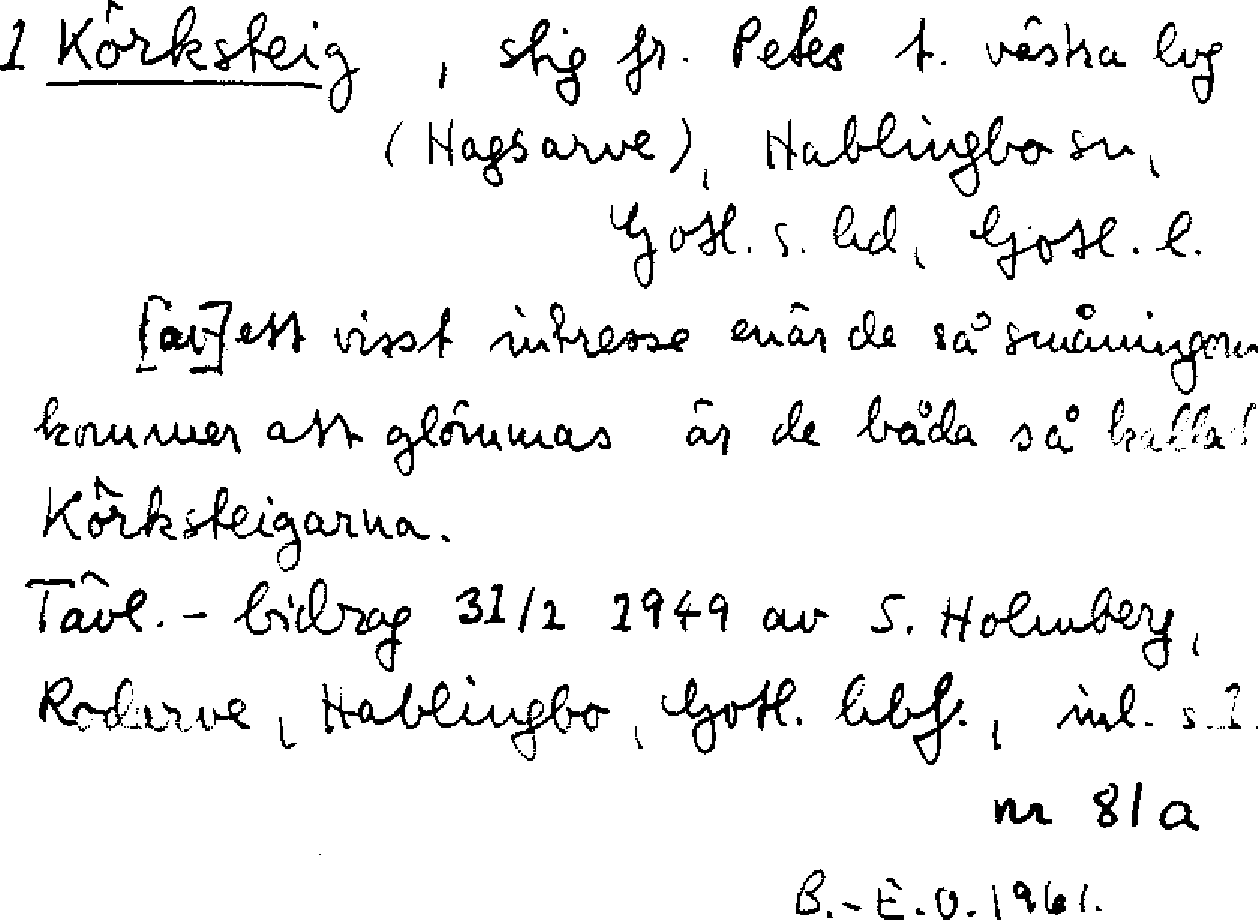 1 Körksteig, stig fr. Petes t. västra lvg
(Hagsarve), Hablingbo sn,
Gotl. s. hd, Gotl. l.
[av] ett visst intresse enär de så småningom
kommer att glömmas är de båda så kallad
Körksteigarna.
Tävl. - bidrag 31/2 1949 av S. Holmberg,
Rodarve, Hablingbo, Gotl. hbf., inl. s. 1.
nr 81a
B.-E.O. 1961.